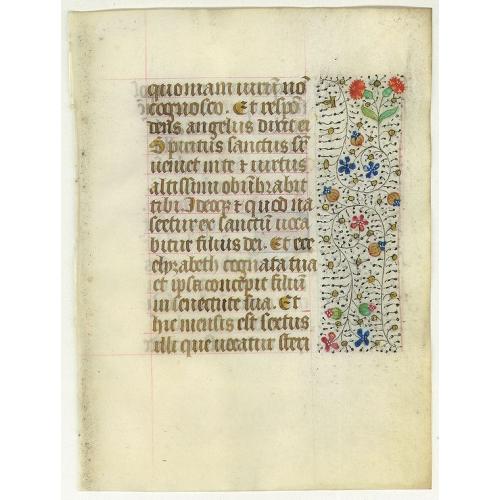 quoniam virum nō
cognosco. Et respō
dens angelus dixit ei
Spiritus sanctus sū
ueniet in te ⁊ uirtus
altissimi obūbrabit
tibi. Ideoqȝ ⁊ quod na
scetur ex te sanctū uoca
bitur filius dei. Et ecce
elyzabeth cognata tua
et ipsa concepit filiū
in senectute sua. Et
hic mensis est sextus
illi que uocatur steri